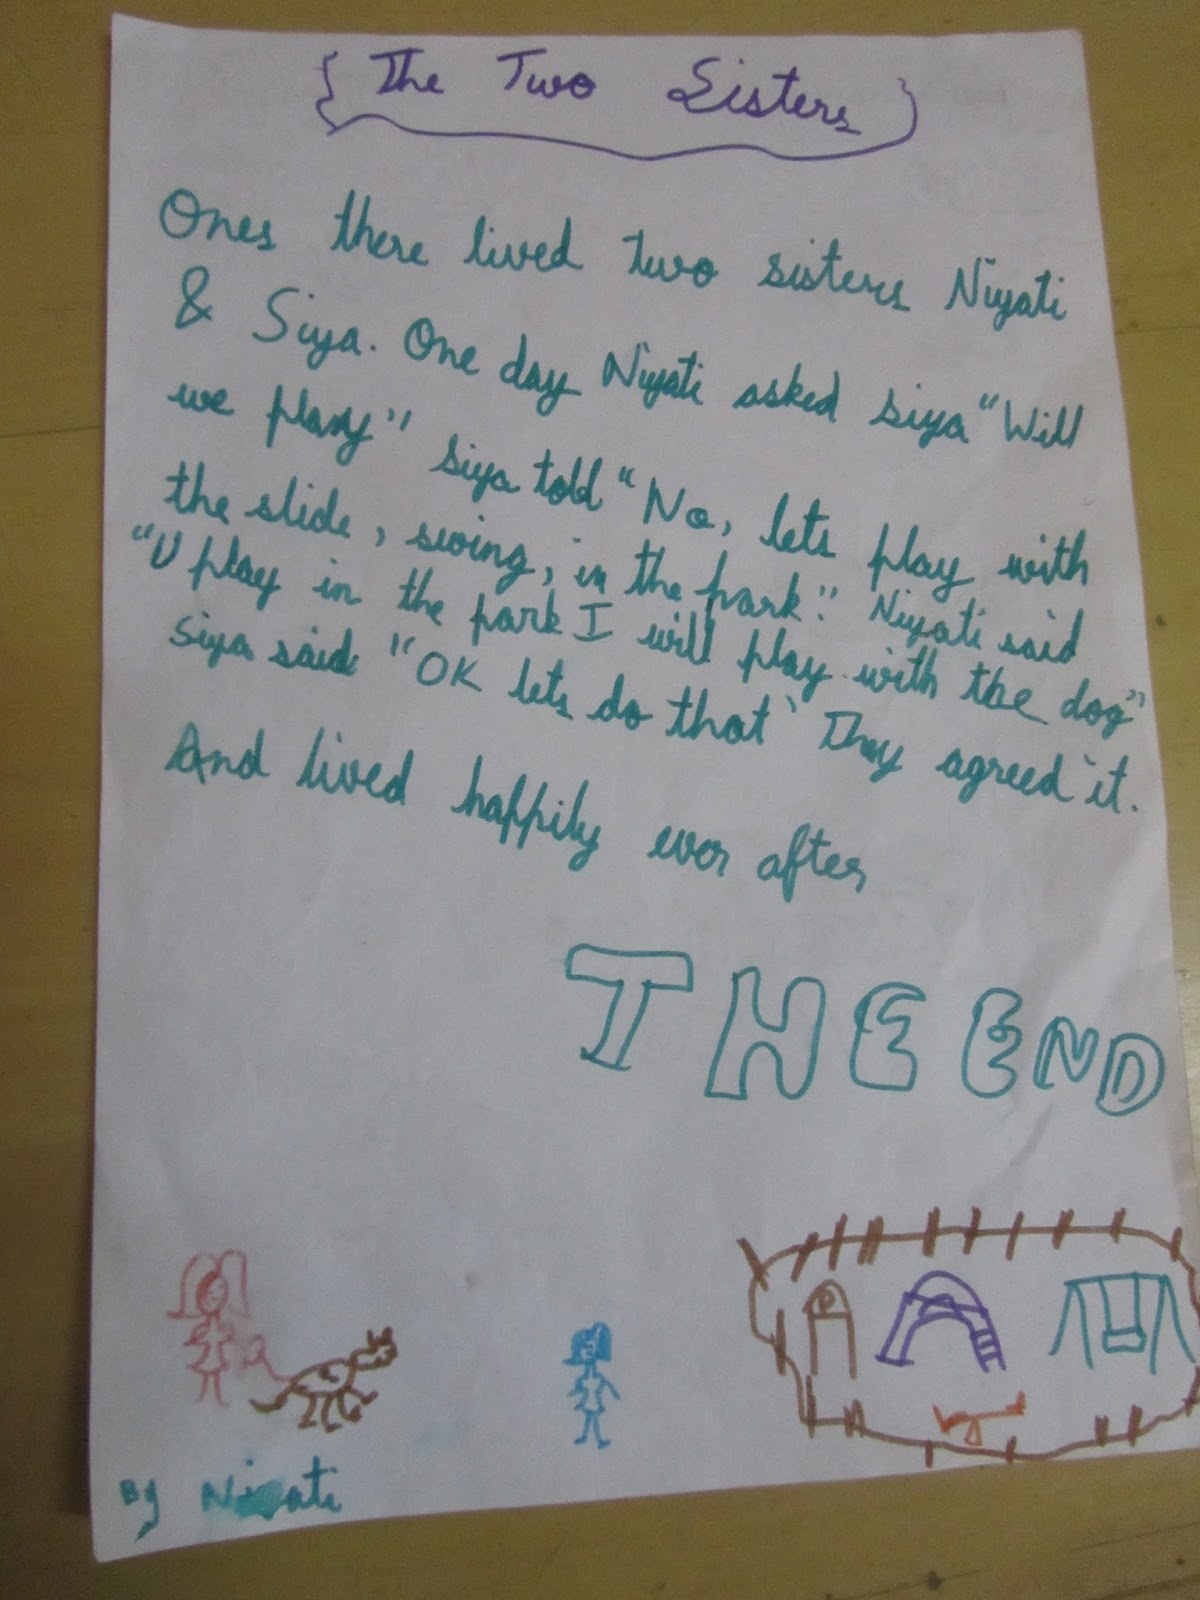 { The Two Sisters }
Ones there lived two sisters Niyati
& Siya. One day Niyati asked siya "Will
we play" siya told "No, lets play with
the slide, swing, in the park." Niyati said
"U play in the park I will play with the dog"
siya said "OK lets do that' They agreed it.
And lived happily ever after
THE END
By Niyati